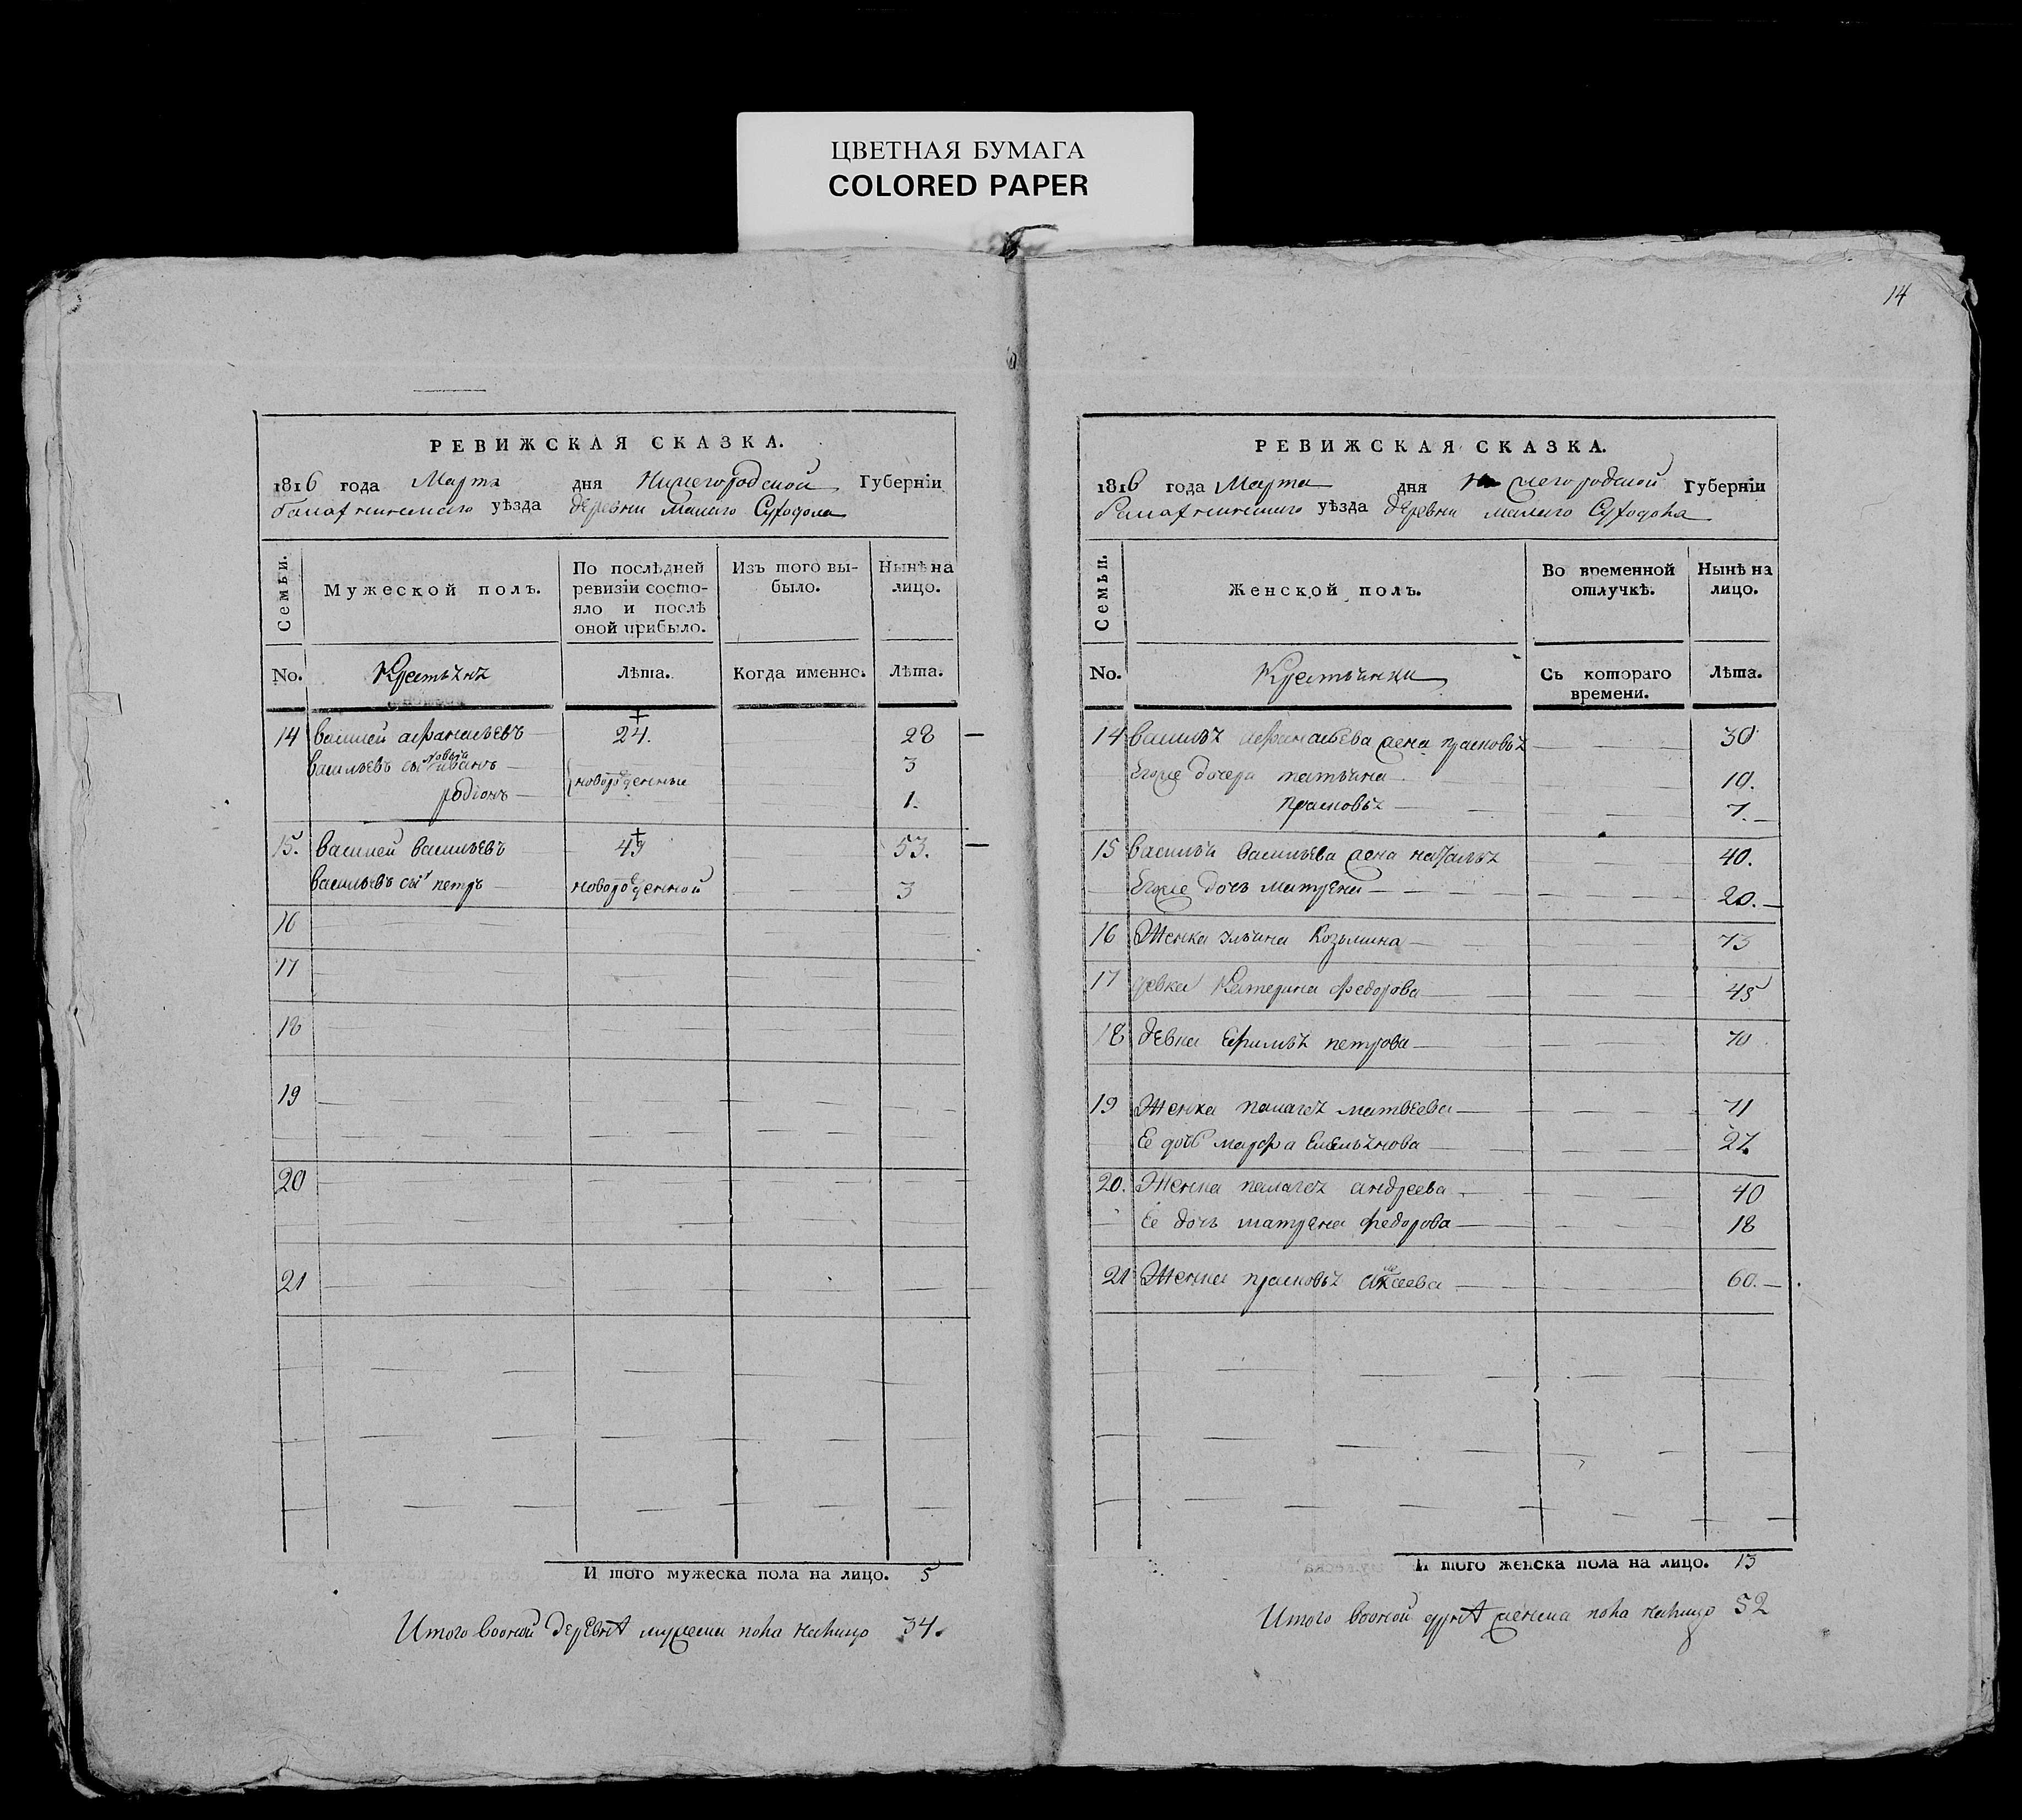 ЦВЕТНАЯ БУМАГА
COLORED PAPER
14
РЕВИЖСКАЯ СКАЗКА.
1816 года Марта дня Нижегородской Губерніи
балахнинскаго уѣзда деревни малаго Суходола
Семьи.
Мужеской полъ.
По послѣдней ревизіи состояло и послѣ оной прибыло.
Изъ того выбыло.
Нынѣ на лицо.
No. Крестьянъ Лѣта. Когда именно. Лѣта.
14 василей афанасьевъ 24. 28
васильевъ сынъ иванъ новорожденныи 3
родіонъ 1.
15. василей васильевъ 49 53.
васильевъ сынъ петръ новорожденной 3
16
17
18
19
20
21
И того мужеска пола на лицо. 5
Итого вооной деревнѣ мужеска пола налицо 34.
РЕВИЖСКАЯ СКАЗКА.
1816 года Марта дня Нижегородской Губерніи
балахнинскаго уѣзда деревни малаго Суходола
Семьи.
Женской полъ.
Во временной отлучкѣ.
Нынѣ на лицо.
No. Крестьянки Съ котораго времени. Лѣта.
14 василья афанасьева жена прасковья 30
Егоже дочери татьяна 10.
прасковья 7.
15 василья васильева жена наталья 40.
Егоже дочь матрена 20.
16 Женка ульяна Козьмина 73
17 девка Катерина федорова 45
18 девка Ефимья петрова 70
19 Женка палагея матвеева 71
Ее дочь марфа Емельянова 27.
20. Женка палагея андреева 40
Ее дочь матрена федорова 18
21 Женка прасковья 60.
И того женска пола на лицо. 13
Итого вооной дерѣвнѣ женска пола налицо 52